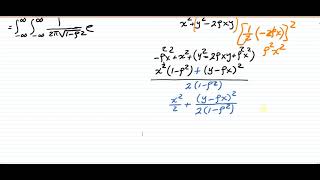 = ∫_{-∞}^{∞} ∫_{-∞}^{∞} 1/(2π√(1-ρ²)) e
x² + (y² - 2ρxy)
[½(-2ρx)]²
ρ²x²
-ρ²x² + x² + (y² - 2ρxy + ρ²x²)
x²(1-ρ²) + (y-ρx)²
2(1-ρ²)
x²/2 + (y-ρx)²/2(1-ρ²)